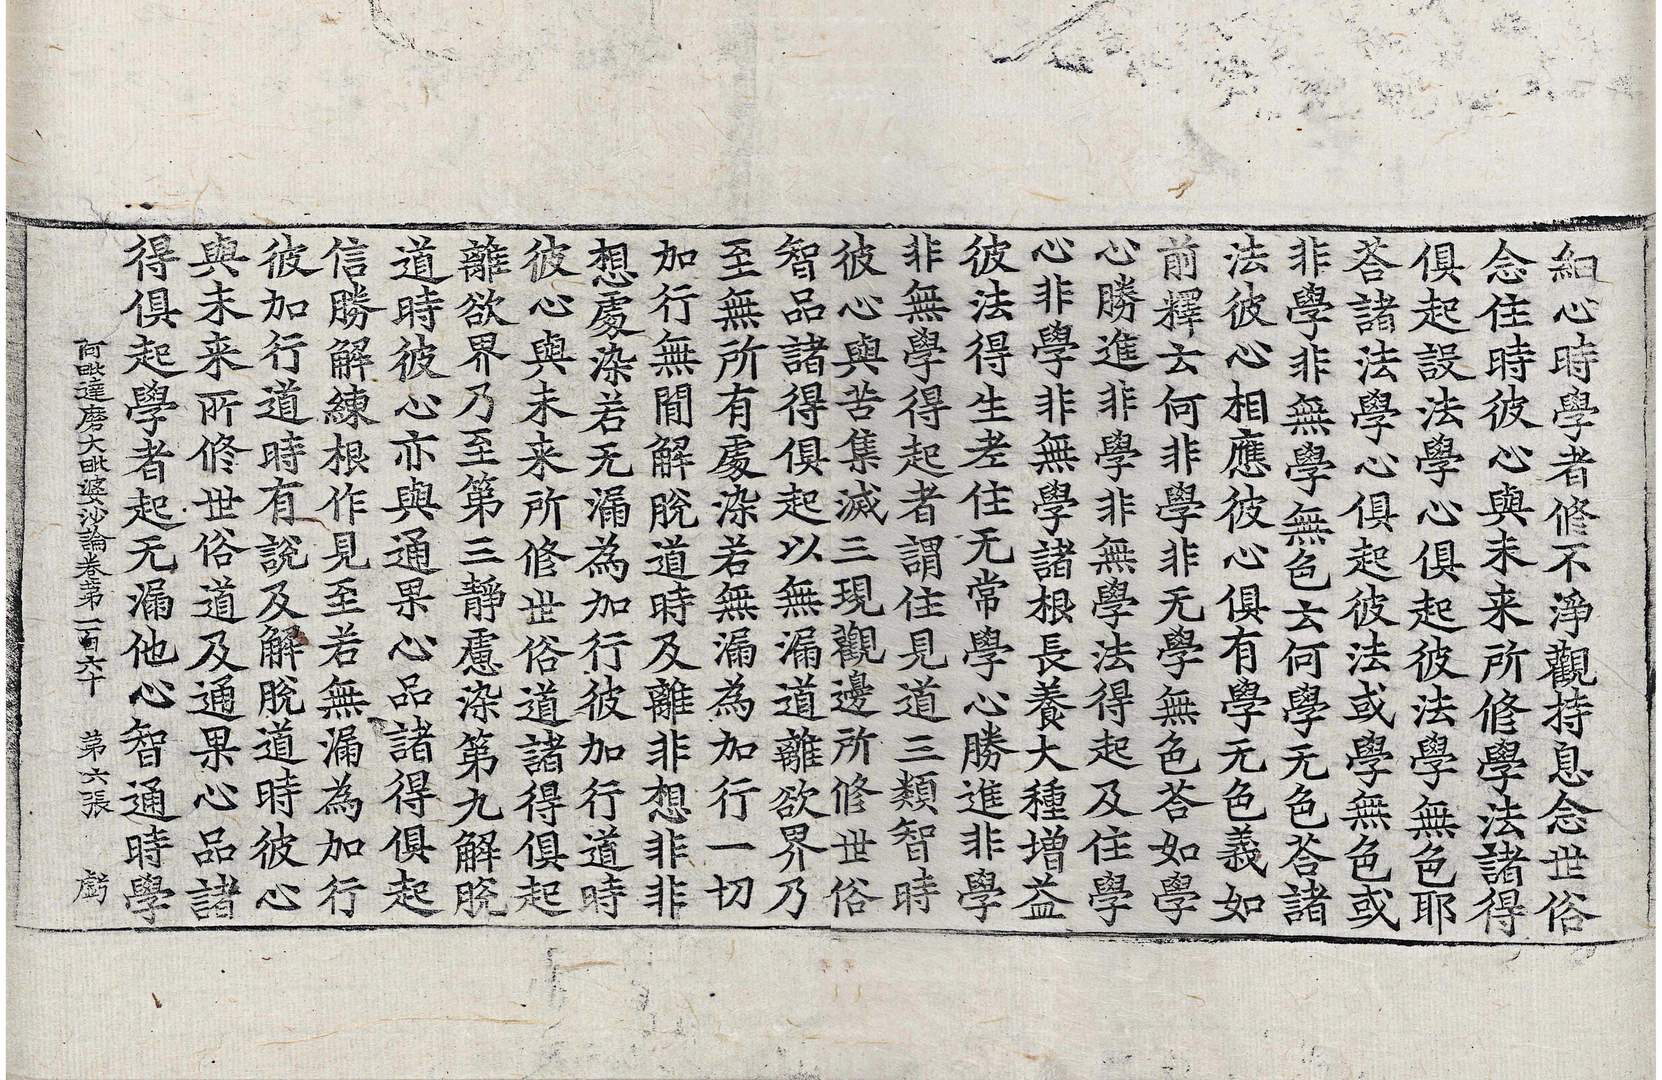 細心時學者修不淨觀持息念世俗
念住時彼心與未来所修學法諸得
俱起設法學心俱起彼法學無色耶
荅諸法學心俱起彼法或學無色或
非學非無學無色云何學无色荅諸
法彼心相應彼心俱有學无色義如
前釋云何非學非无學無色荅如學
心勝進非學非無學法得起及住學
心非學非無學諸根長養大種增益
彼法得生老住无常學心勝進非學
非無學得起者謂住見道三類智時
彼心與苦集滅三現觀邊所修世俗
智品諸得俱起以無漏道離欲界乃
至無所有處染若無漏為加行一切
加行無間解脫道時及離非想非非
想處染若无漏為加行彼加行道時
彼心與未来所修世俗道諸得俱起
離欲界乃至第三靜慮染第九解脫
道時彼心亦與通果心品諸得俱起
信勝解練根作見至若無漏為加行
彼加行道時有說及解脫道時彼心
與未来所修世俗道及通果心品諸
得俱起學者起无漏他心智通時學
阿毗達磨大毗婆沙論卷第一百六十 第六張 虧